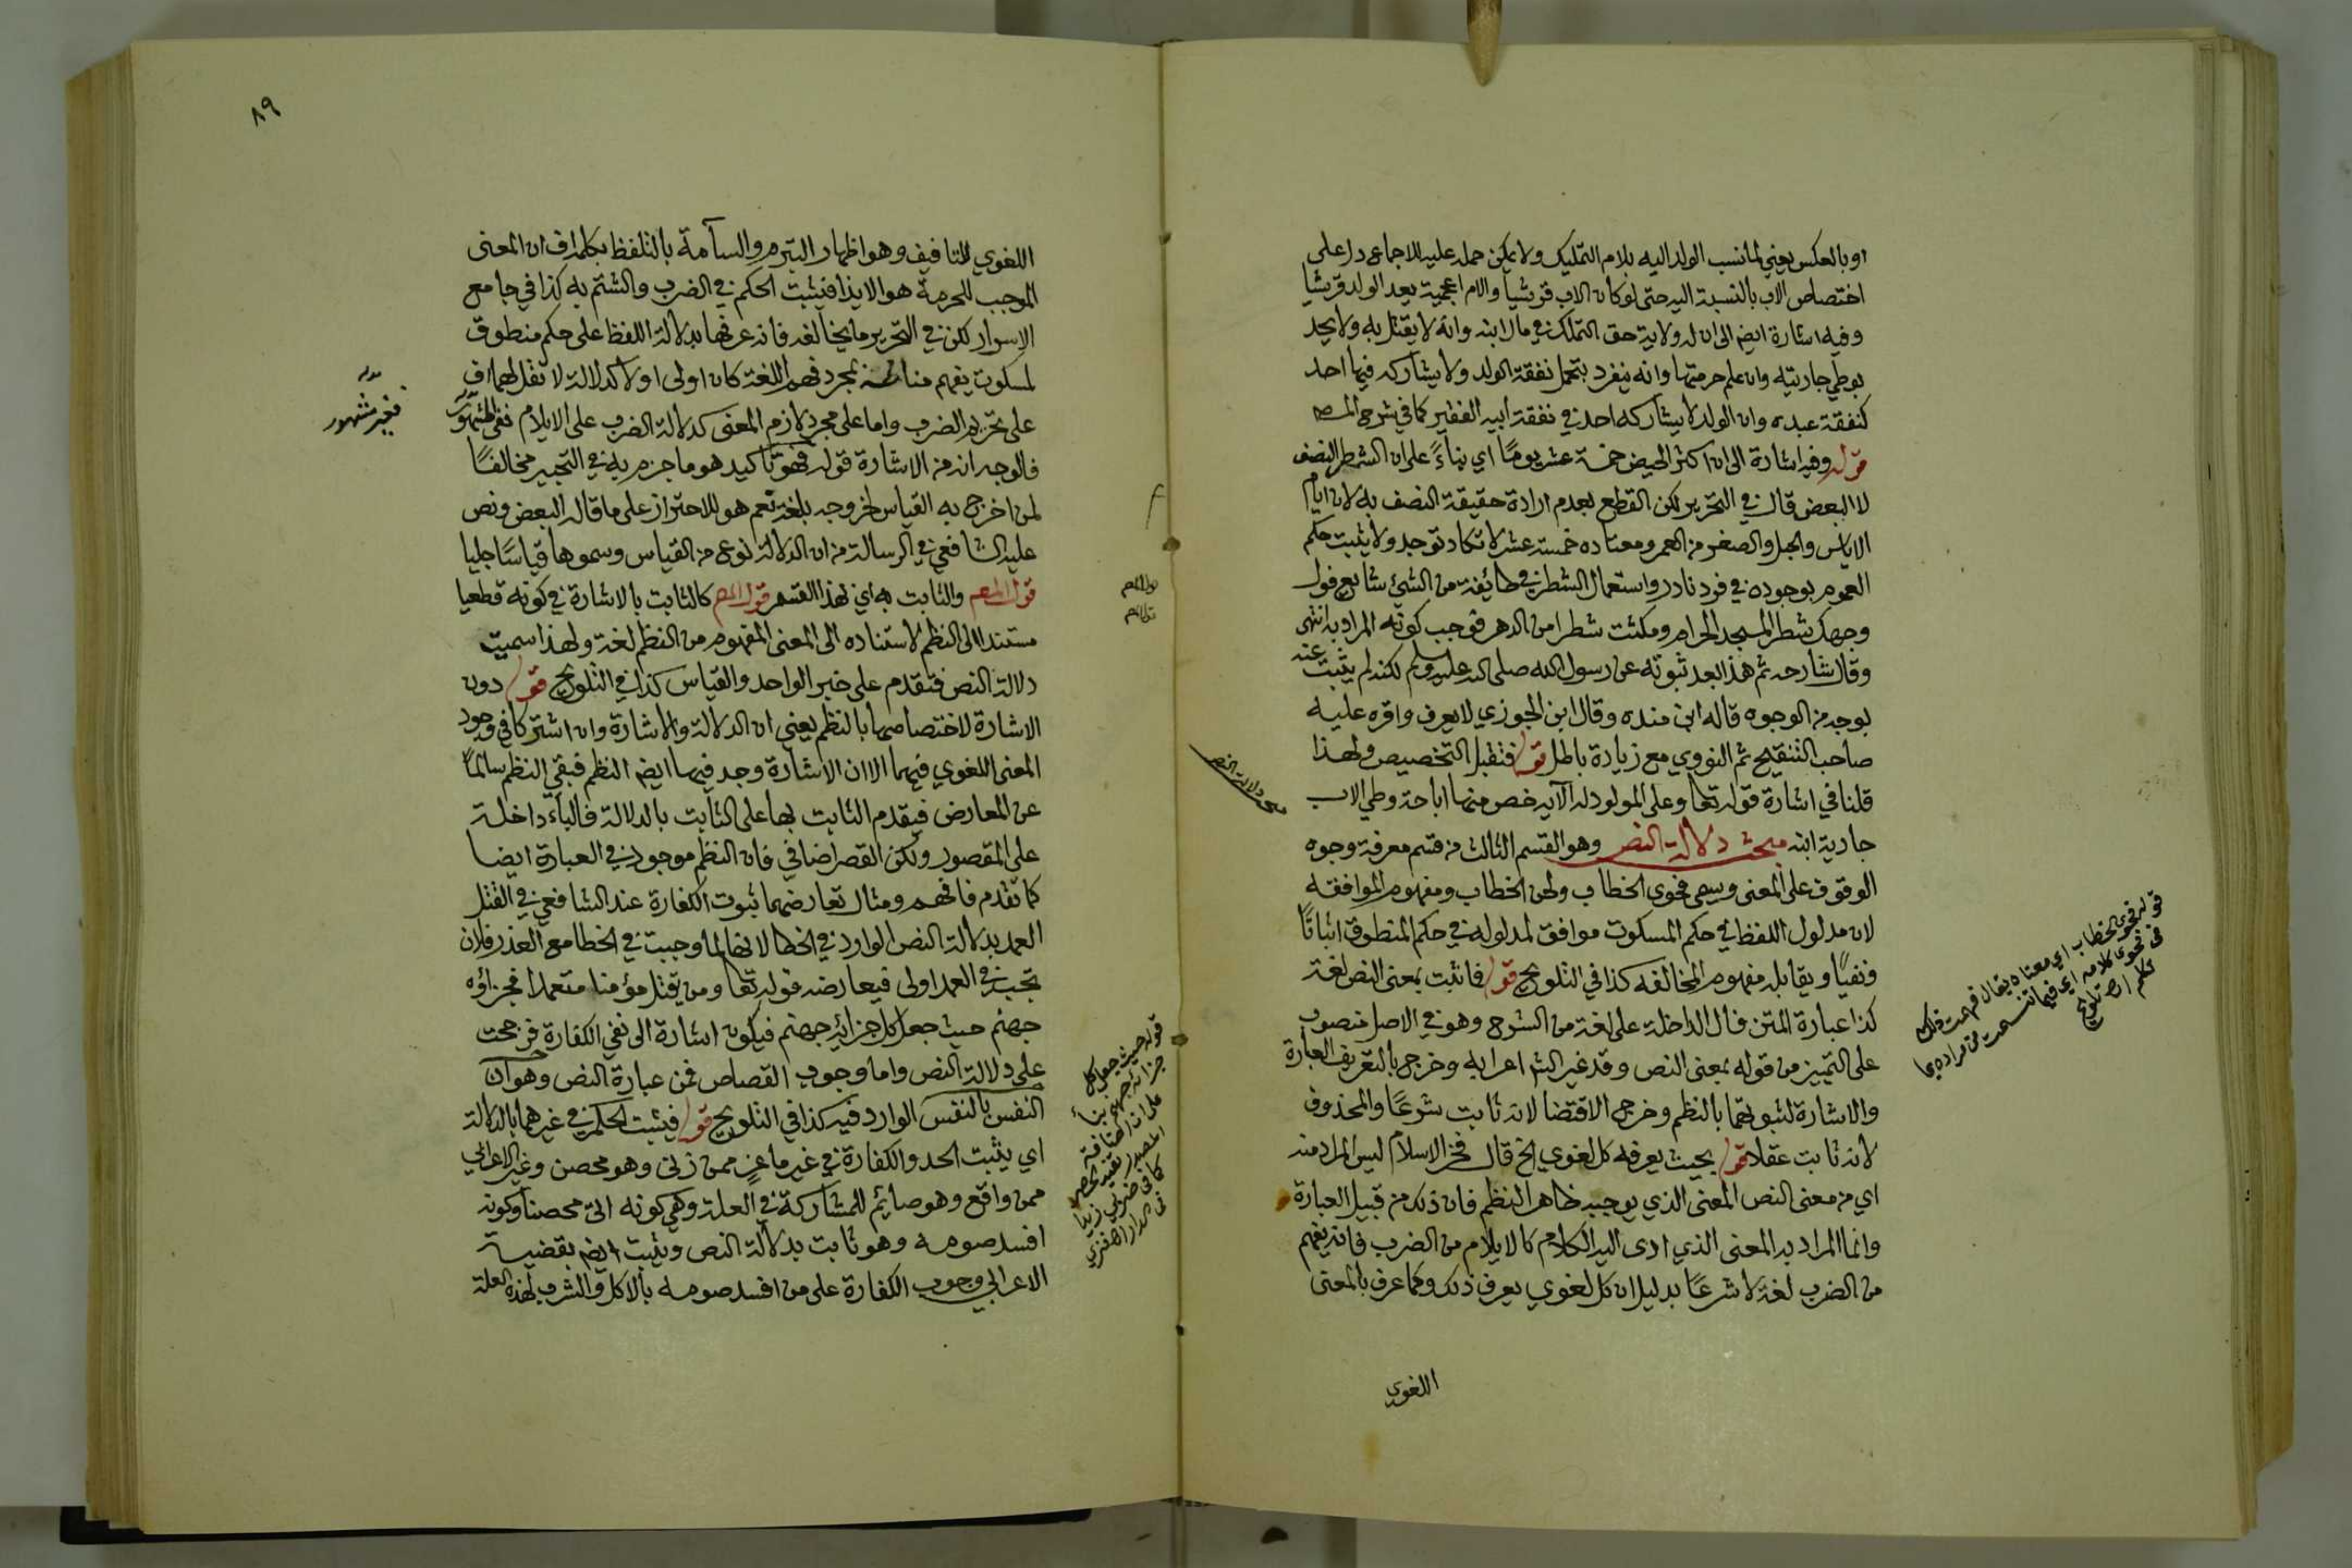 او بالعكس يعني لما نسب الولد اليه بلام التمليك ولا يمكن حمله عليه للاجماع دل على
اختصاص الاب بالنسبة اليه حتى لو كان الاب قرشيا والام اعجمية يعد الولد قرشيا
وفيه اشارة ايضا الى ان له ولاية حق التملك في مال ابنه وانه لا يقتل به ولا يحد
بوطي جاريته وان علم حرمتها وانه ينفرد بتحمل نفقة الولد ولا يشاركه فيها احد
كنفقة عبده وان الولد لا يشاركه احد في نفقة ابيه الفقير كما في شرح المصـ
قوله وفيه اشارة الى ان اكثر الحيض خمسة عشر يومًا اي بناءً على ان الشطر النصف
لا البعض قال في التحرير لكن القطع بعدم ارادة حقيقة النصف به لان ايام
الاياس والحبل والصغر من العمر ومعتاده خمسة عشر لا تكاد توجد ولا يثبت حكم
العموم بوجوده في فرد نادر واستعمال الشطر في طائفة من الشيئ شايع فول
وجهك شطر المسجد الحرام ومكثت شطرا من الدهر فوجب كونه المراد به انتهى
وقال شارحه ثم هذا بعد ثبوته عن رسول الله صلى الله عليه وسلم لكنه لم يثبت عنه
بوجه من الوجوه قاله ابن منده وقال ابن الجوزي لا يعرف واقره عليه
صاحب التنقيح ثم النووي مع زيادة باطل قوله فتقبل التخصيص ولهذا
قلنا في اشارة قوله تعا وعلى المولود له الآية خص منها اباحة وطي الاب
جارية ابنه مبحث دلالة النص وهو القسم الثالث من قسم معرفة وجوه
الوقوف على المعنى ويسمى فحوى الخطاب ولحن الخطاب ومفهوم الموافقه
لان مدلول اللفظ في حكم المسكوت موافق لمدلوله في حكم المنطوق اثباتًا
ونفيًا ويقابله مفهوم المخالفه كذا في التلويح قوله فما ثبت بمعنى النص لغة
كذا عبارة المتن فال الداخلة على لغة من الشرح وهو في الاصل منصوب
على التمييز من قوله بمعنى النص وقد غير الشـ اعرابه وخرج بالتعريف العبارة
والاشارة لثبوتهما بالنظم وخرج الاقتضا لانه ثابت شرعًا والمحذوف
لانه ثابت عقلا قوله بحيث يعرفه كل لغوي الخ قال فخر الاسلام ليس المراد منه
اي من معنى النص المعنى الذي يوجبه ظاهر النظم فان ذلك من قبيل العبارة
وانما المراد به المعنى الذي ادى اليه الكلام كالايلام من الضرب فانه يفهم
من الضرب لغة لا شرعًا بدليل ان كل لغوي يعرف ذلك وكما عرف بالمعنى
اللغوي
مبحث دلالة النص
قوله فحوى الخطاب اي معناه يقال فهمت ذلك
من فحوى كلامه اي فيما تنسمت من مراده بما
تكلم اهـ تلويح
٨٩
اللغوي للتافيف وهو اظهار التبرم والسآمة بالتلفظ بكلمة اف ان المعنى
الموجب للحرمة هو الايذا فيثبت الحكم في الضرب والشتم به كذا في جامع
الاسرار لكن في التحرير ما يخالفه فانه عرفها بدلالة اللفظ على حكم منطوق
لمسكوت يفهم مناطه بمجرد فهم اللغة كان اولى او لا كدلالة لا تقل لهما اف
على تحريم الضرب واما على مجرد لازم المعنى كدلالة الضرب على الايلام فغير مشهور
فالوجه انه من الاشارة قوله فهو تاكيد هو ما جزم به في التحبير مخالفًا
لمن اخرج به القياس لخروجه بلغة نعم هو للاحتراز على ما قاله البعض ونص
عليه الشافعي في الرسالة من ان الدلالة نوع من القياس وسموها قياسًا جليا
قول المصـ والثابت به اي بهذا القسم قول المصـ كالثابت بالاشارة في كونه قطعيا
مستندا الى النظم لاستناده الى المعنى المفهوم من النظم لغة ولهذا سميت
دلالة النص فتقدم على خبر الواحد والقياس كذا في التلويح قوله دون
الاشارة لاختصاصها بالنظم يعني ان الدلالة والاشارة وان اشتركا في وجود
المعنى اللغوي فيهما الا ان الاشارة وجد فيها ايضا النظم فبقي النظم سالمًا
عن المعارض فيقدم الثابت بها على الثابت بالدلالة فالباء داخلة
على المقصور ولكن القصر اضافي فان النظم موجود في العبارة ايضا
كما تقدم فافهم ومثال تعارضهما ثبوت الكفارة عند الشافعي في القتل
العمد بدلالة النص الوارد في الخطا لانها لما وجبت في الخطا مع العذر فلان
تجب في العمد اولى فيعارضه قوله تعا ومن يقتل مؤمنا متعمدا فجزاؤه
جهنم حيث جعل كل جزائه جهنم فيكون اشارة الى نفي الكفارة فرجحت
على دلالة النص واما وجوب القصاص فمن عبارة النص وهو ان
النفس بالنفس الوارد فيه كذا في التلويح قوله فيثبت الحكم في غيرهما بالدلالة
اي يثبت الحد والكفارة في غير ماعز ممن زنى وهو محصن وغير الاعرابي
ممن واقع وهو صايم للمشاركة في العلة وهي كونه اتى محصنا وكونه
افسد صومه وهو ثابت بدلالة النص ويثبت ايضا بقضية
الاعرابي وجوب الكفارة على من افسد صومه بالاكل والشرب لهذه العلة
فغير مشهور
قوله حيث جعل كل
جزائه جهنم بناءً
على ان اضافة
المصدر تفيد الحصر
كما في ضربي زيدا
في الدار اهـ فنري